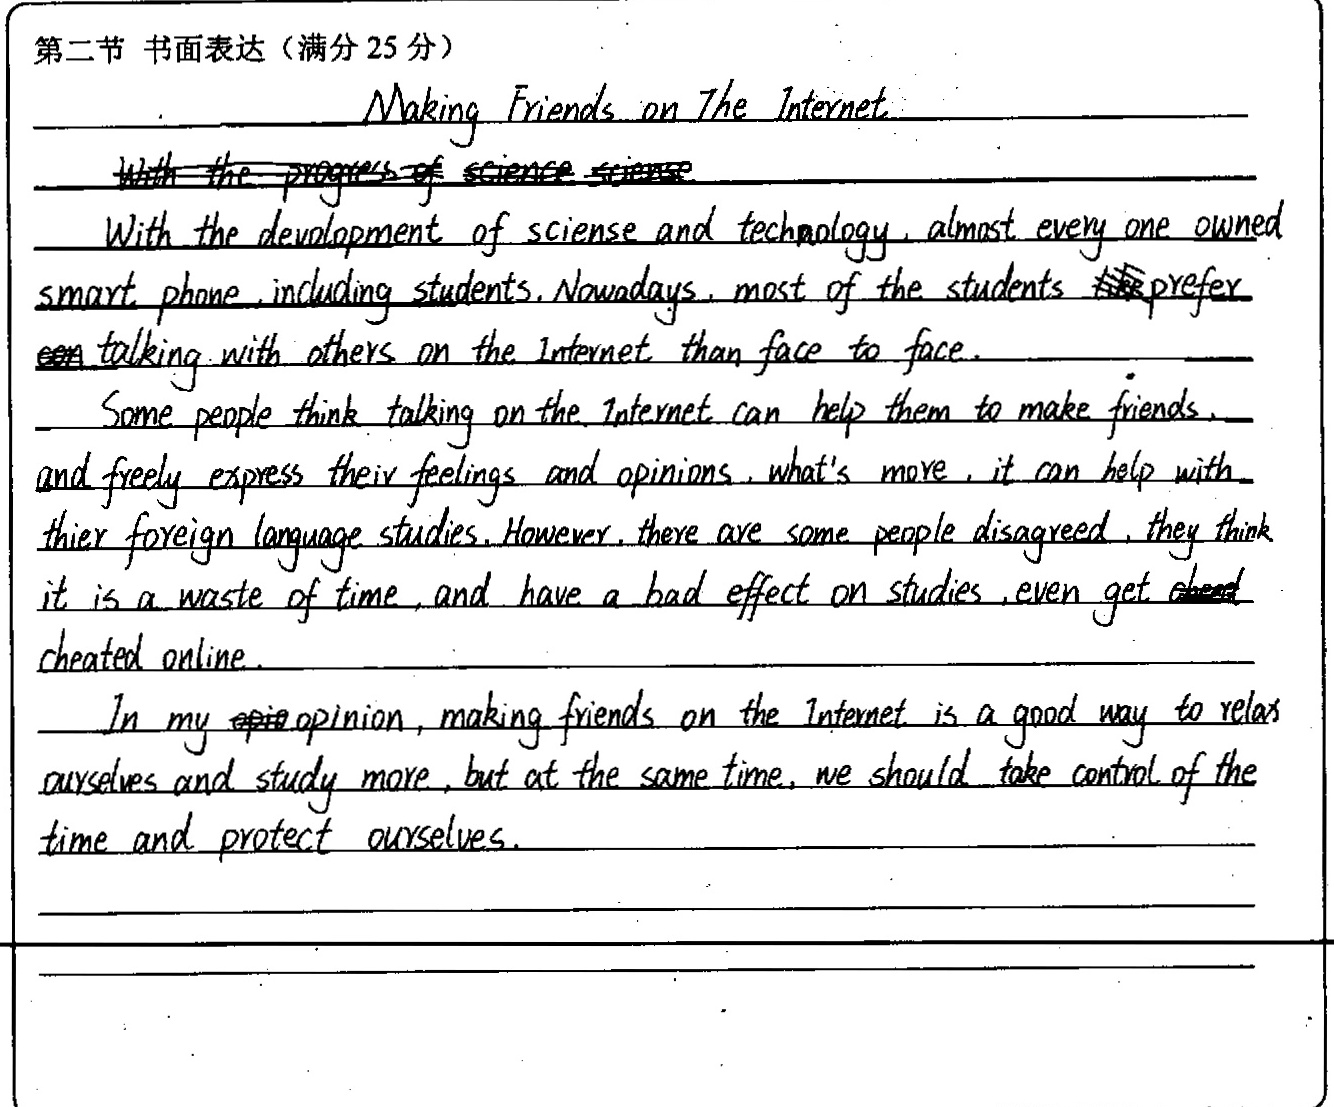 第二节 书面表达（满分 25 分）
Making Friends on The Internet
With the progress of science sciense
With the devolopment of sciense and technology, almost every one owned
smart phone, including students. Nowadays, most of the students prefer
talking with others on the Internet than face to face.
Some people think talking on the Internet can help them to make friends,
and freely express their feelings and opinions, what's more, it can help with
thier foreign language studies. However, there are some people disagreed, they think
it is a waste of time, and have a bad effect on studies, even get
cheated online.
In my opinion, making friends on the Internet is a good way to relax
ourselves and study more, but at the same time, we should take control of the
time and protect ourselves.